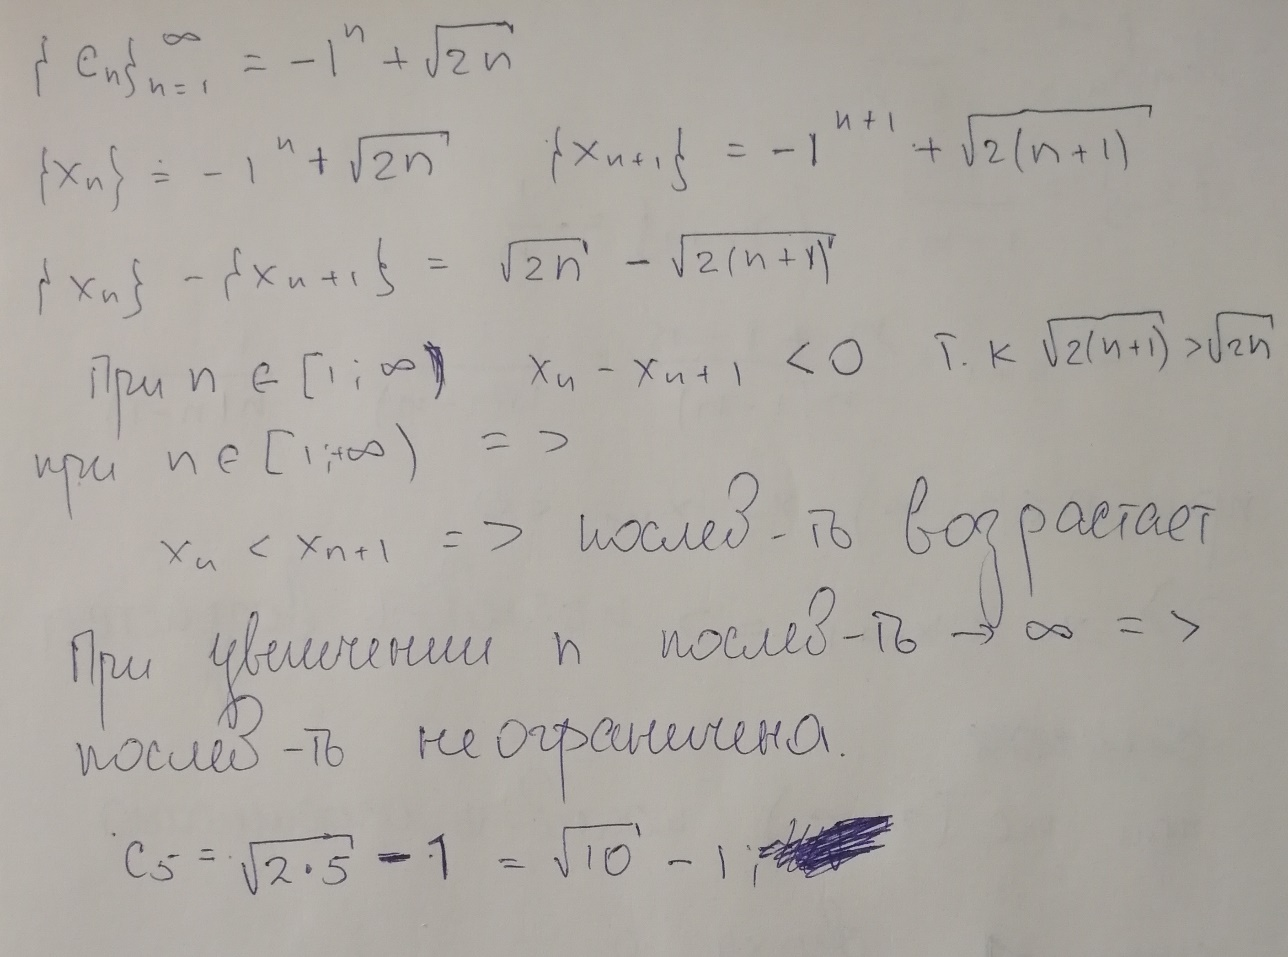 {Cn}∞n=1 = -1^n + √2n
{xn} = -1^n + √2n {xn+1} = -1^n+1 + √2(n+1)
{xn} - {xn+1} = √2n - √2(n+1)
При n ∈ [1; ∞) xn - xn+1 < 0 т.к √2(n+1) > √2n
при n ∈ [1; +∞) =>
xn < xn+1 => послед-ть возрастает
При увеличении n послед-ть → ∞ =>
послед-ть не ограничена.
C5 = √2·5 - 1 = √10 - 1;